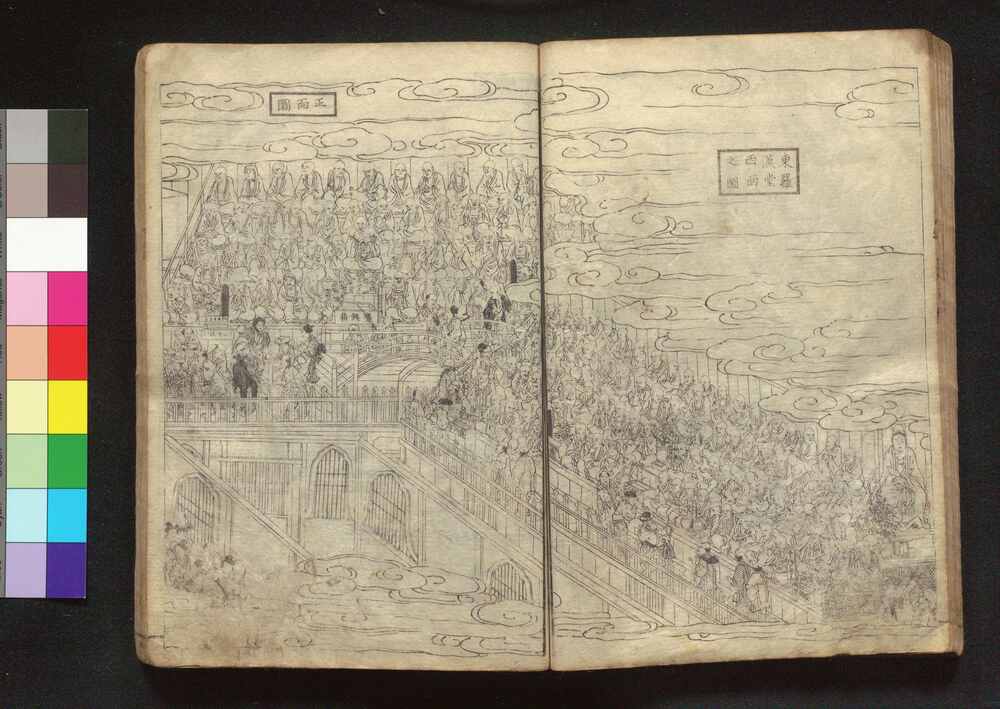 東羅
漢堂
西面
之圖
正面圖